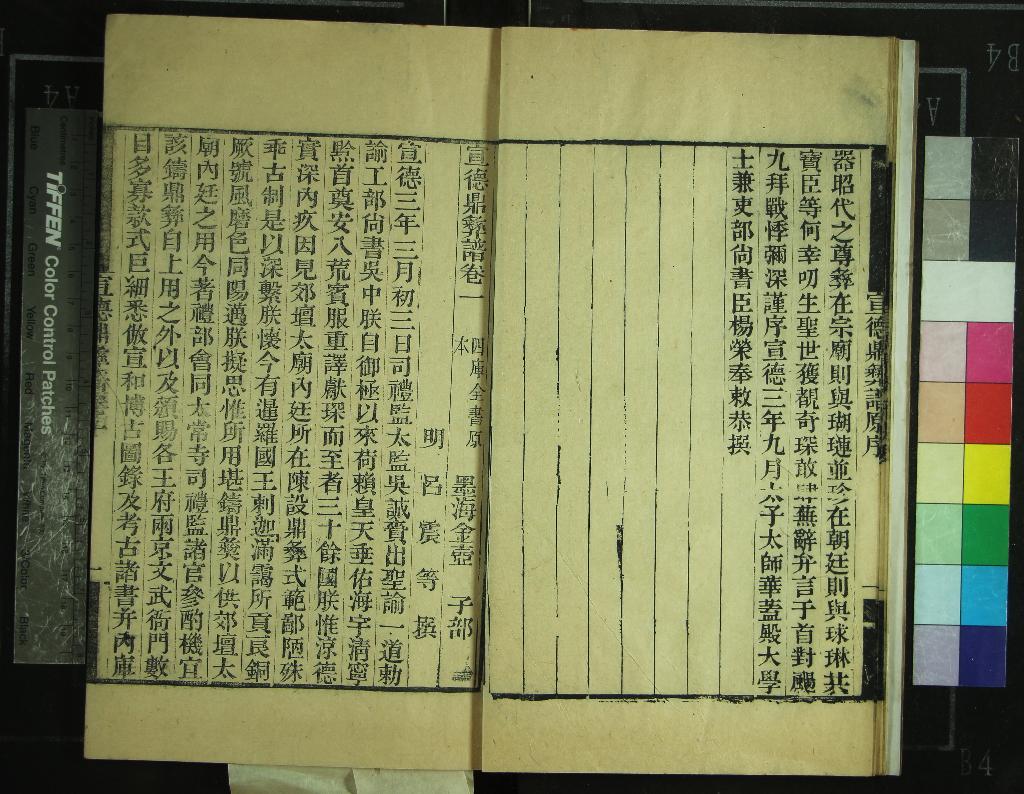 宣德鼎彝譜原序
器昭代之尊彝在宗廟則與瑚璉並珍在朝廷則與球琳共
寶臣等何幸叨生聖世獲覩奇琛敢肆蕪辭弁言于首對颺
九拜戰悸彌深謹序宣德三年九月太子太師華蓋殿大學
士兼吏部尚書臣楊榮奉敕恭撰
宣德鼎彝譜卷一 四庫全書原本 墨海金壺 子部
明 呂 震 等 撰
宣德三年三月初三日司禮監太監吳誠賫出聖諭一道勅
諭工部尚書吳中朕自御極以來荷賴皇天垂佑海宇清寧
黔首奠安八荒賓服重譯獻琛而至者三十餘國朕惟涼德
實深內疚因見郊壇太廟內廷所在陳設鼎彝式範鄙陋殊
乖古制是以深繫朕懷今有暹羅國王剌迦滿靄所貢良銅
厥號風磨色同陽邁朕擬思惟所用堪鑄鼎彝以供郊壇太
廟內廷之用今著禮部會同太常寺司禮監諸官參酌機宜
該鑄鼎彝自上用之外以及頒賜各王府兩京文武衙門數
目多寡款式巨細悉倣宣和博古圖錄及考古諸書并內庫
宣德鼎彝譜卷一
一
TIFFEN Color Control Patches
Blue
Cyan
Green
Yellow
Red
Magenta
White
3/Color
Black
Centimetres
A4
B4
A4
B4